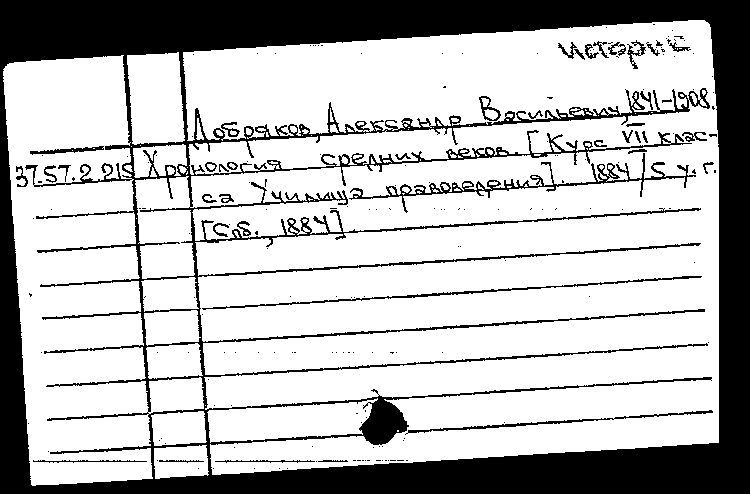 история
Добряков, Александр Васильевич, 1841-1908.
37.57.2.215 Хронология средних веков. [Курс VII клас-
са Училища правоведения]. 1884/5 у. г.
[Спб., 1884].